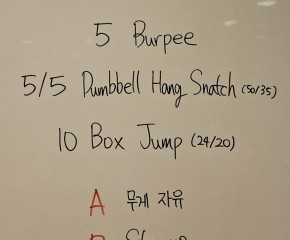 5 Burpee
5/5 Dumbbell Hang Snatch (50/35)
10 Box Jump (24/20)
A 무게 자유